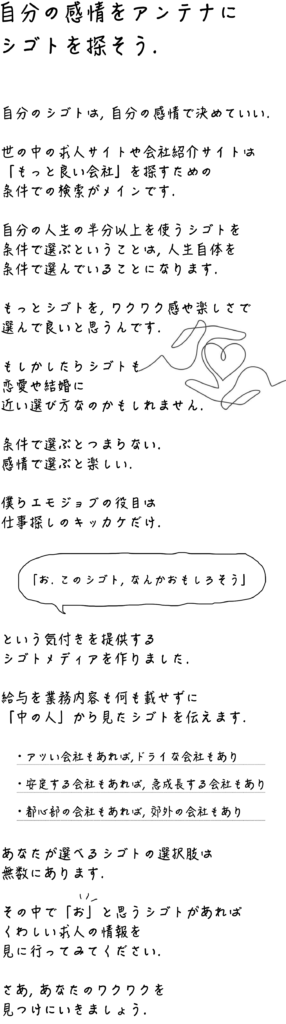 自分の感情をアンテナに
シゴトを探そう.
自分のシゴトは, 自分の感情で決めていい.
世の中の求人サイトや会社紹介サイトは
「もっと良い会社」を探すための
条件での検索がメインです.
自分の人生の半分以上を使うシゴトを
条件で選ぶということは, 人生自体を
条件で選んでいることになります.
もっとシゴトを, ワクワク感や楽しさで
選んで良いと思うんです.
もしかしたらシゴトも
恋愛や結婚に
近い選び方なのかもしれません.
条件で選ぶとつまらない.
感情で選ぶと楽しい.
僕らエモジョブの役目は
仕事探しのキッカケだけ.
「お. このシゴト, なんかおもしろそう」
という気付きを提供する
シゴトメディアを作りました.
給与を業務内容も何も載せずに
「中の人」から見たシゴトを伝えます.
・アツい会社もあれば, ドライな会社もあり
・安定する会社もあれば, 急成長する会社もあり
・都心部の会社もあれば, 郊外の会社もあり
あなたが選べるシゴトの選択肢は
無数にあります.
その中で「お」と思うシゴトがあれば
くわしい求人の情報を
見に行ってみてください.
さあ, あなたのワクワクを
見つけにいきましょう.